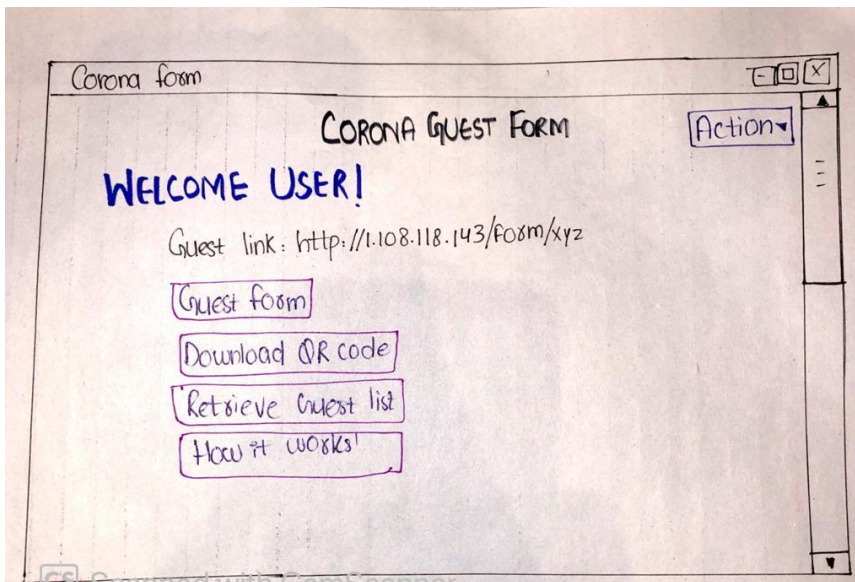 Corona form
CORONA GUEST FORM
Action
WELCOME USER!
Guest link: http://1.108.118.143/form/xyz
Guest form
Download QR code
Retrieve Guest list
How it works'
CS Scanned with CamScanner